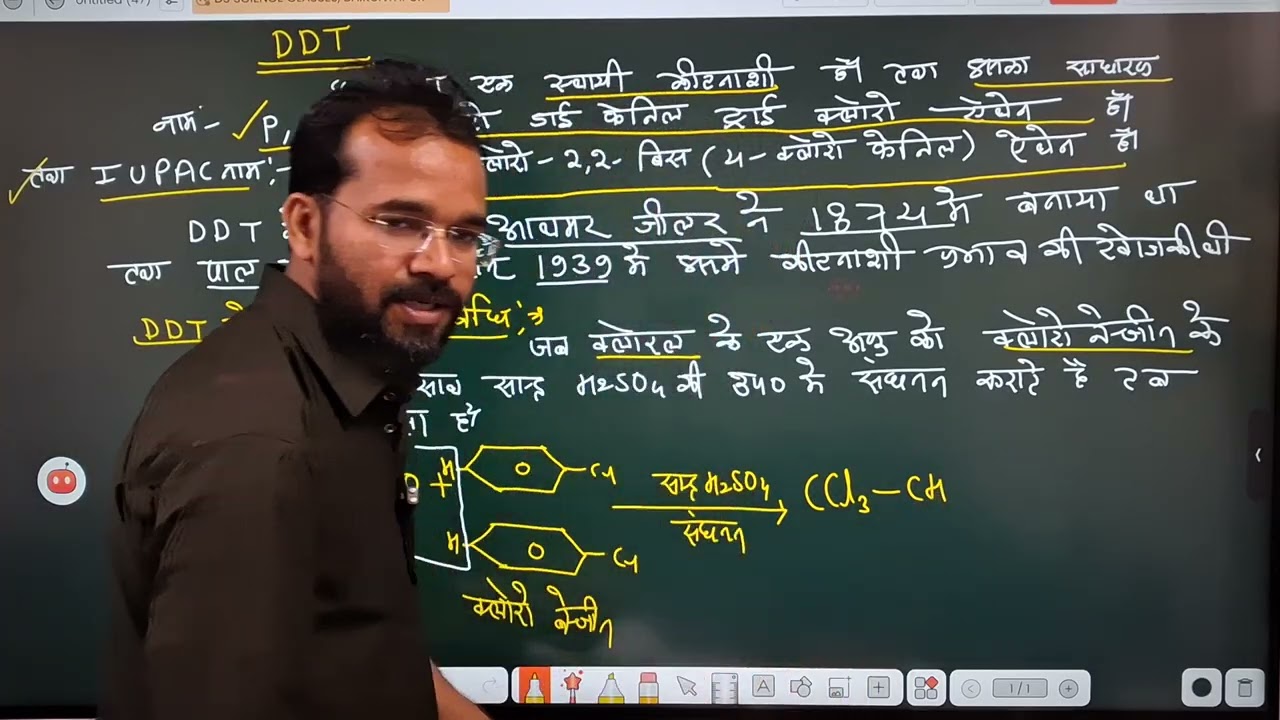 Untitled (47) DS SCIENCE CLASSES,
DDT
एक स्थायी कीटनाशी है तथा इसका साधारण
नाम- ✓ P, डाई फेनिल ट्राई क्लोरो एथेन है
✓ तथा IUPAC नाम:- क्लोरो-2,2- बिस (4-क्लोरो फेनिल) ऐथेन है
DDT आथमर जीलर ने 1874 में बनाया था
तथा पाल 1939 में इसमे कीटनाशी प्रभाव की खोज की थी
DDT विधि:→
जब क्लोरल के एक अणु को क्लोरो बेन्जीन के
साथ सान्द्र H2SO4 की में संघनन कराते है तब
है
+ H O Cl
H O Cl
सान्द्र H2SO4
संघनन
CCl3-CH
क्लोरो बेन्जीन
1/1